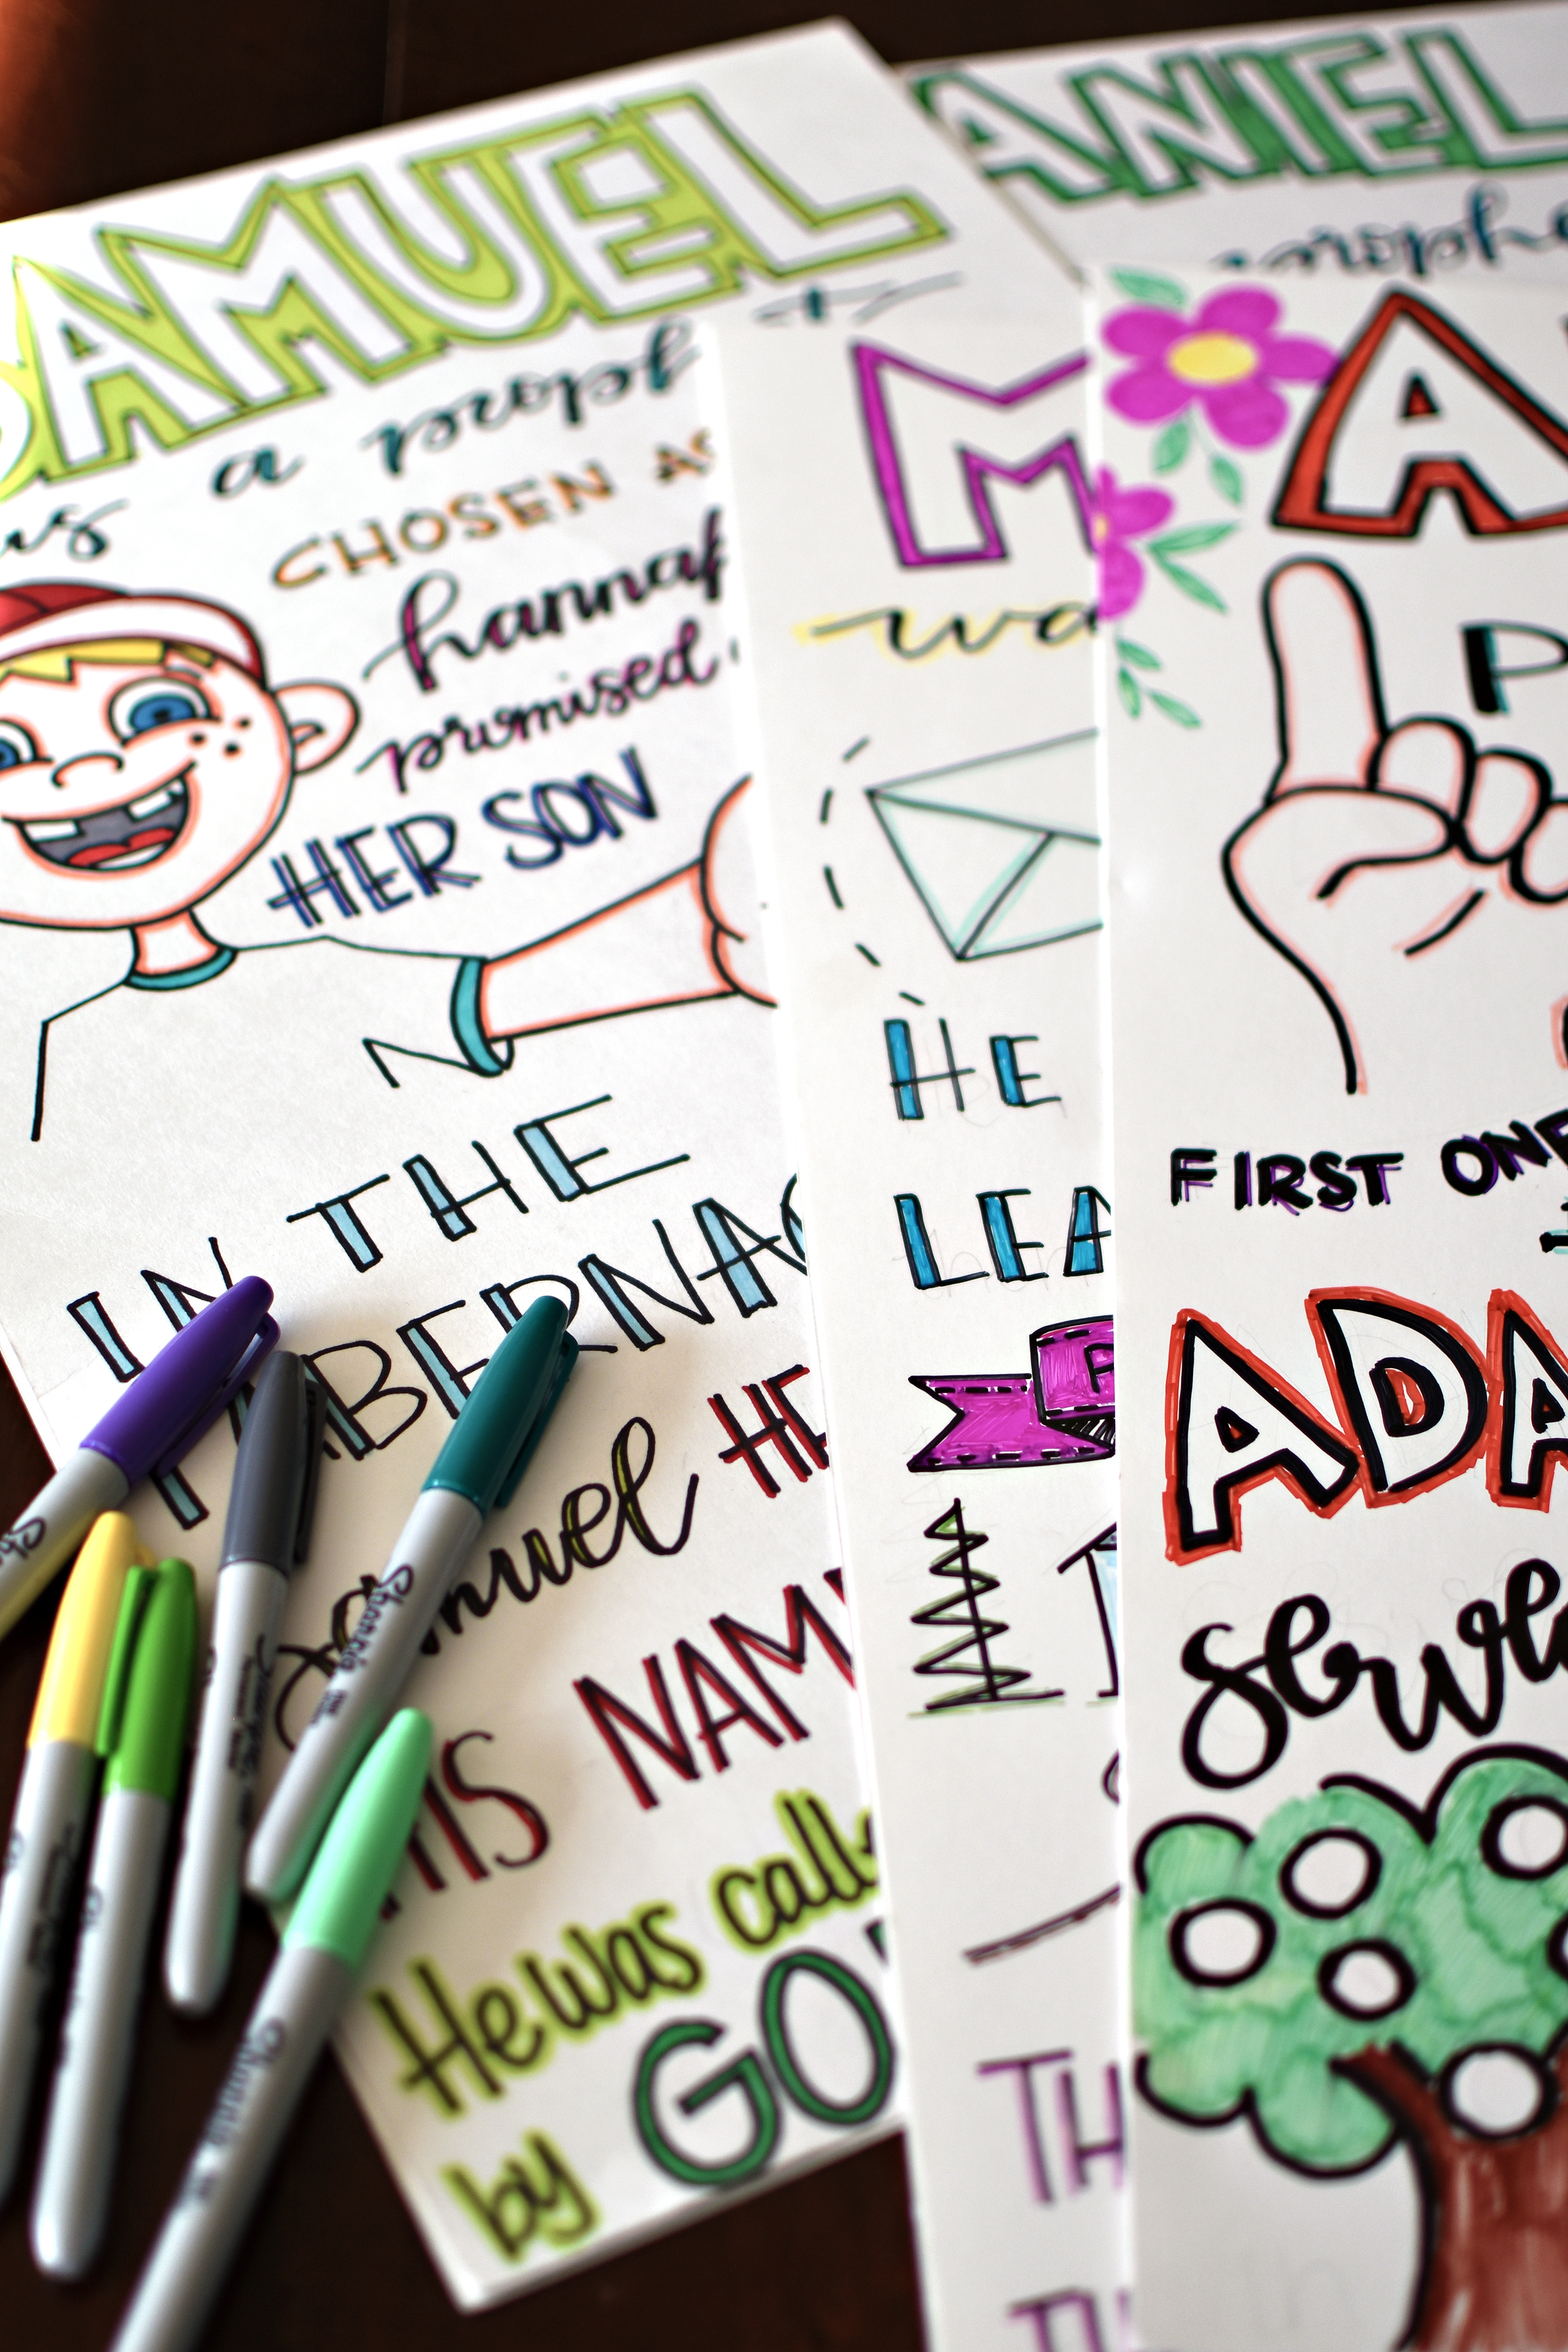 SAMUEL
a proph
CHOSEN AS
hannah
promised
HER SON
IN THE
TABERNAC
Samuel HE
HIS NAM
He was calle
by GO
ANIEL
prophe
M
wa
HE
LEA
P
TH
A
P
FIRST ONE
ADA
serve
Sharpie